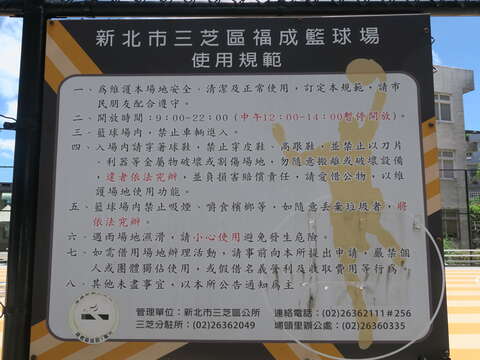 新北市三芝區福成籃球場
使用規範
一、為維護本場地安全、清潔及正常使用，訂定本規範，請市
民朋友配合遵守。
二、開放時間：9:00-22:00 (中午12:00-14:00暫停開放)。
三、籃球場內，禁止車輛進入。
四、入場內請穿著球鞋，禁止穿皮鞋、高跟鞋，並禁止以刀片
、利器等金屬物破壞或割傷場地，勿隨意搬離或破壞設備
，違者依法究辦，並負損害賠償責任，請愛惜公物，以維
護場地使用功能。
五、籃球場內禁止吸煙、嚼食檳榔等，如隨意丟棄垃圾者，將
依法究辦。
六、遇雨場地濕滑，請小心使用避免發生危險。
七、如需借用場地辦理活動，請事前向本所提出申請，嚴禁個
人或團體獨佔使用，或假借名義營利及收取費用等行為。
八、其他未盡事宜，以本所公告通知為主。
管理單位：新北市三芝區公所 連絡電話：(02)26362111#256
三芝分駐所：(02)26362049 埔頭里辦公處：(02)26360335